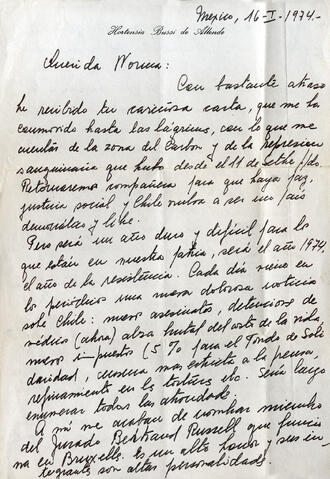 Mexico, 16-I-1974.-
Hortensia Bussi de Allende
Querida Norma:
Con bastante atraso
he recibido tu cariñosa carta, que me ha
conmovido hasta las lágrimas, con lo que me
cuentas de la zona del Carbon y de la represion
sanguinaria que hubo desde el 11 de Setbre/pdo.
Retornaremos compañera para que haya paz,
justicia social y Chile vuelva a ser un pais
democrático y libre.
Pero será un año duro y dificil para los
que están en nuestra patria, será el año 1974,
el año de la resistencia. Cada dia viene en
los periódicos una nueva dolorosa noticia
sobre Chile: nuevos asesinatos, detenciones de
médicos (ahora) alza brutal del costo de la vida
nuevos impuestos (5% para el Fondo de Soli
daridad, censura mas estricta a la prensa,
refinamiento en las torturas etc. Sería largo
enumerar todas las atrocidades.
A mi me acaban de nombrar miembro
del Jurado Bertrand Russell que funcio
na en Bruxelles. Es un alto honor y sus in-
tegrants son altas personalidades.